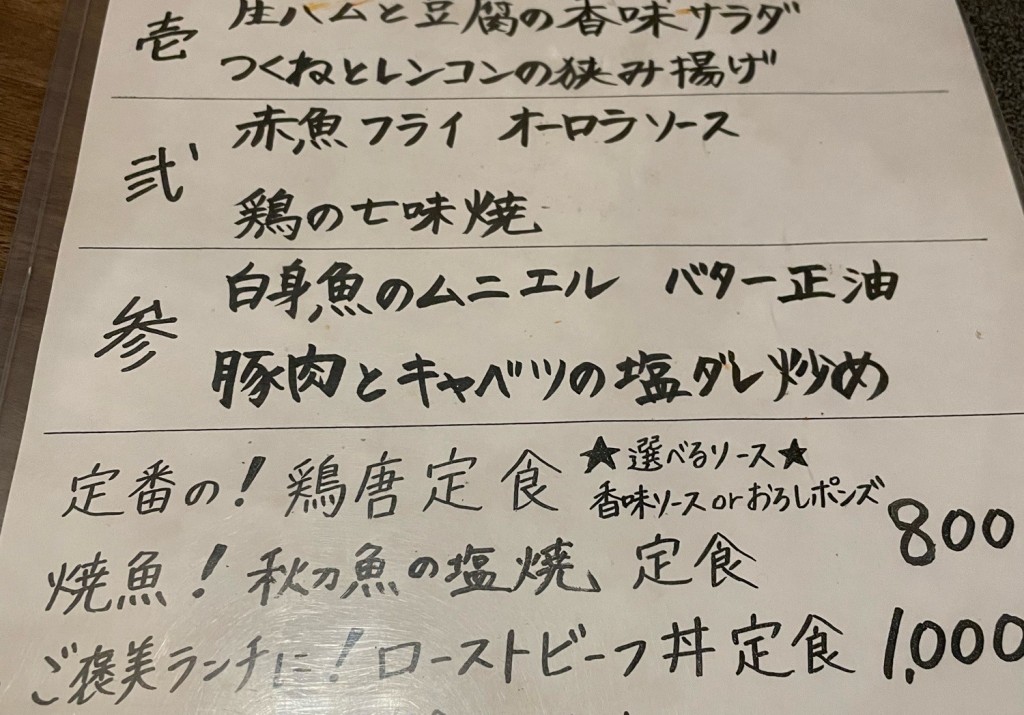 壱 生ハムと豆腐の香味サラダ
つくねとレンコンの狭み揚げ
弐 赤魚フライ オーロラソース
鶏の七味焼
参 白身魚のムニエル バター正油
豚肉とキャベツの塩ダレ炒め
定番の！鶏唐定食 ★選べるソース★
香味ソースorおろしポンズ 800
焼魚！秋刀魚の塩焼 定食
ご褒美ランチに！ローストビーフ丼定食 1,000